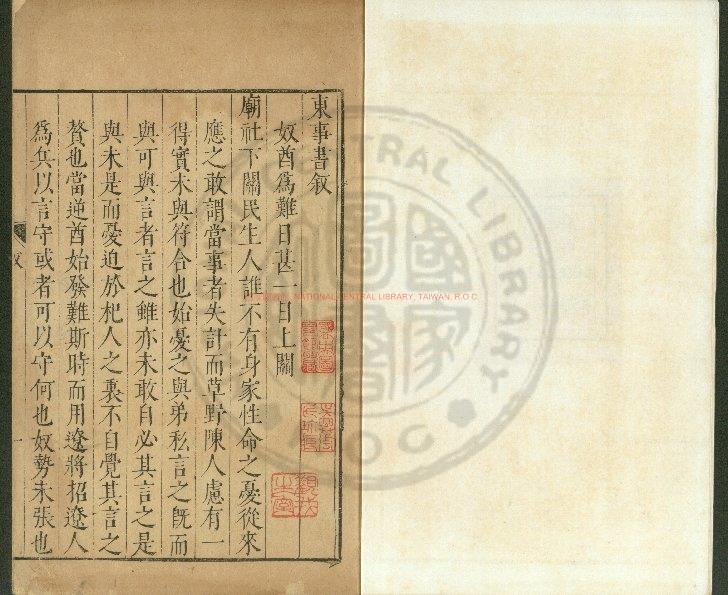 東事書叙
奴酋為難日甚一日上關
廟社下關民生人誰不有身家性命之憂從來
應之敢謂當事者失計而草野陳人慮有一
得實未與符合也始憂之與弟私言之既而
與可與言者言之雖亦未敢自必其言之是
與未是而憂迫於杞人之衷不自覺其言之
贅也當逆酋始發難斯時而用遼將招遼人
為兵以言守或者可以守何也奴勢未張也
叙
一
NATIONAL CENTRAL LIBRARY, TAIWAN, R.O.C
CENTRAL LIBRARY
R.O.C